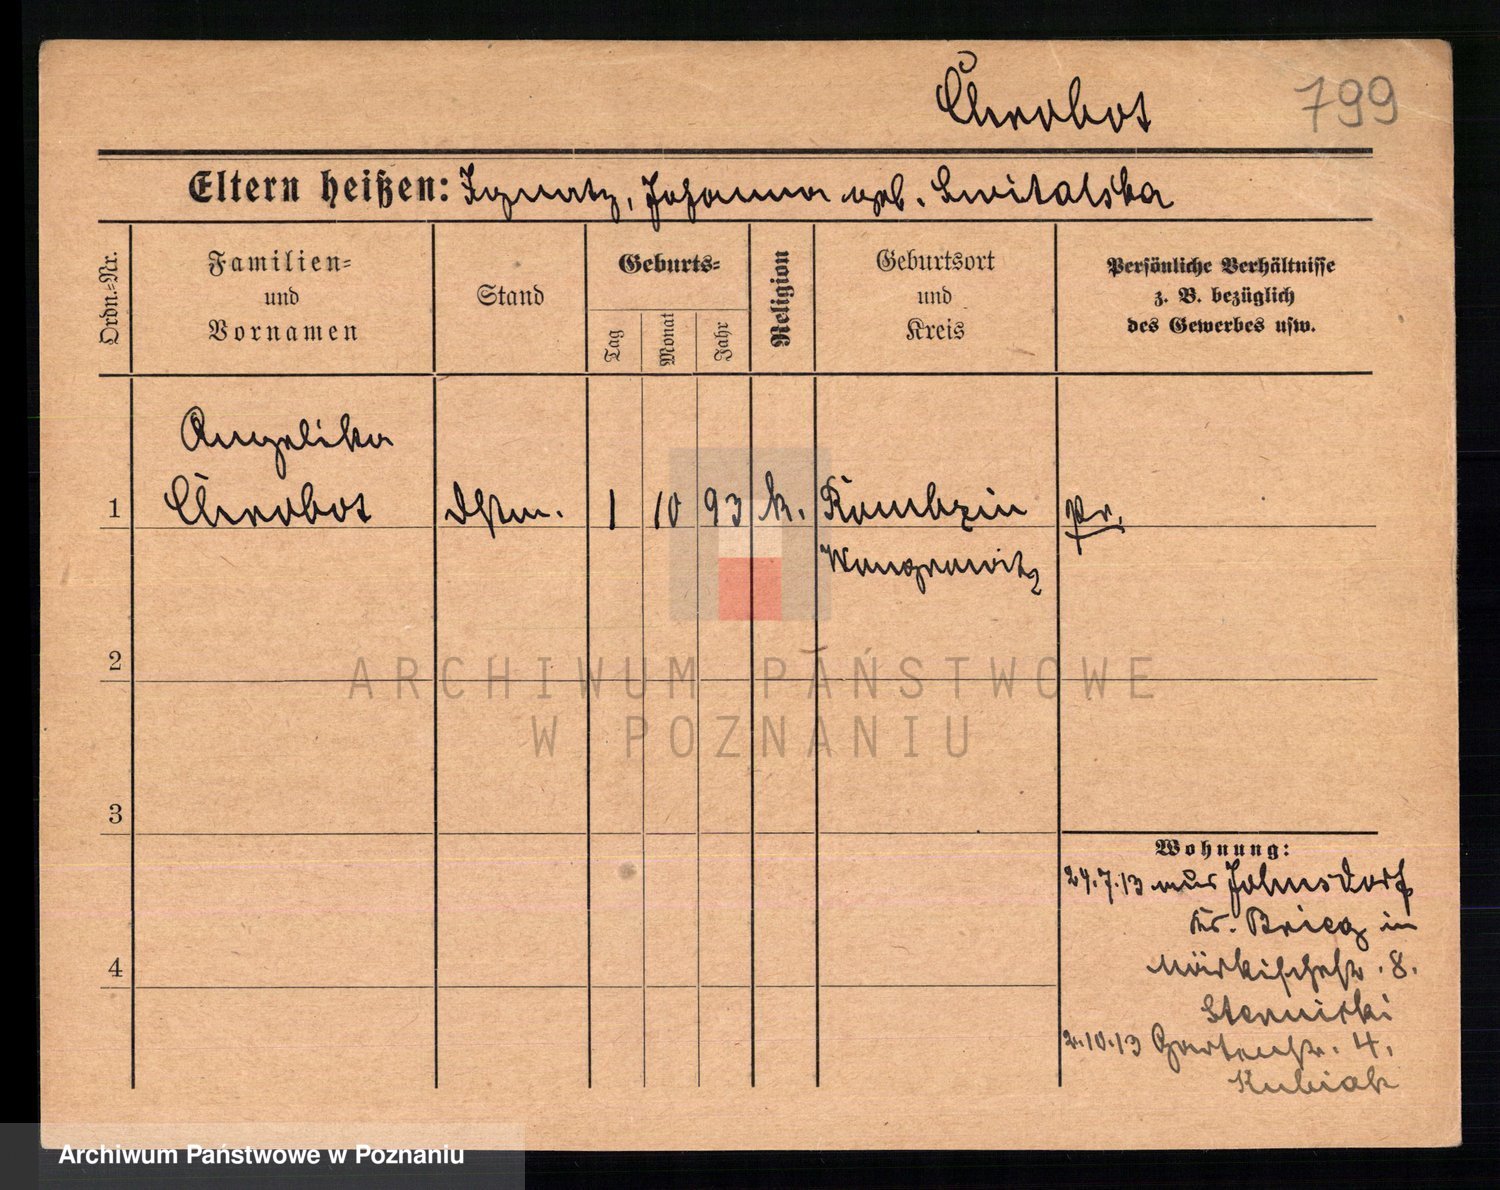 Chrobot
799
Eltern heißen: Ignatz, Johanna geb. Switalska
Ordn.-Nr.
Familien-
und
Vornamen
Stand
Geburts-
Tag
Monat
Jahr
Religion
Geburtsort
und
Kreis
Persönliche Verhältnisse
z. B. bezüglich
des Gewerbes usw.
Angelika
1 Chrobot 1 10 93 k. Rombzin Pr.
Wongrowitz
2
ARCHIWUM PAŃSTWOWE
W POZNANIU
3
Wohnung:
24.7.13 aus Johnsdorf
Kr. Brieg in
Märkischestr. 8.
4
Sternitzki
2.10.13 Gartenstr. 4.
Kubiak
Archiwum Państwowe w Poznaniu